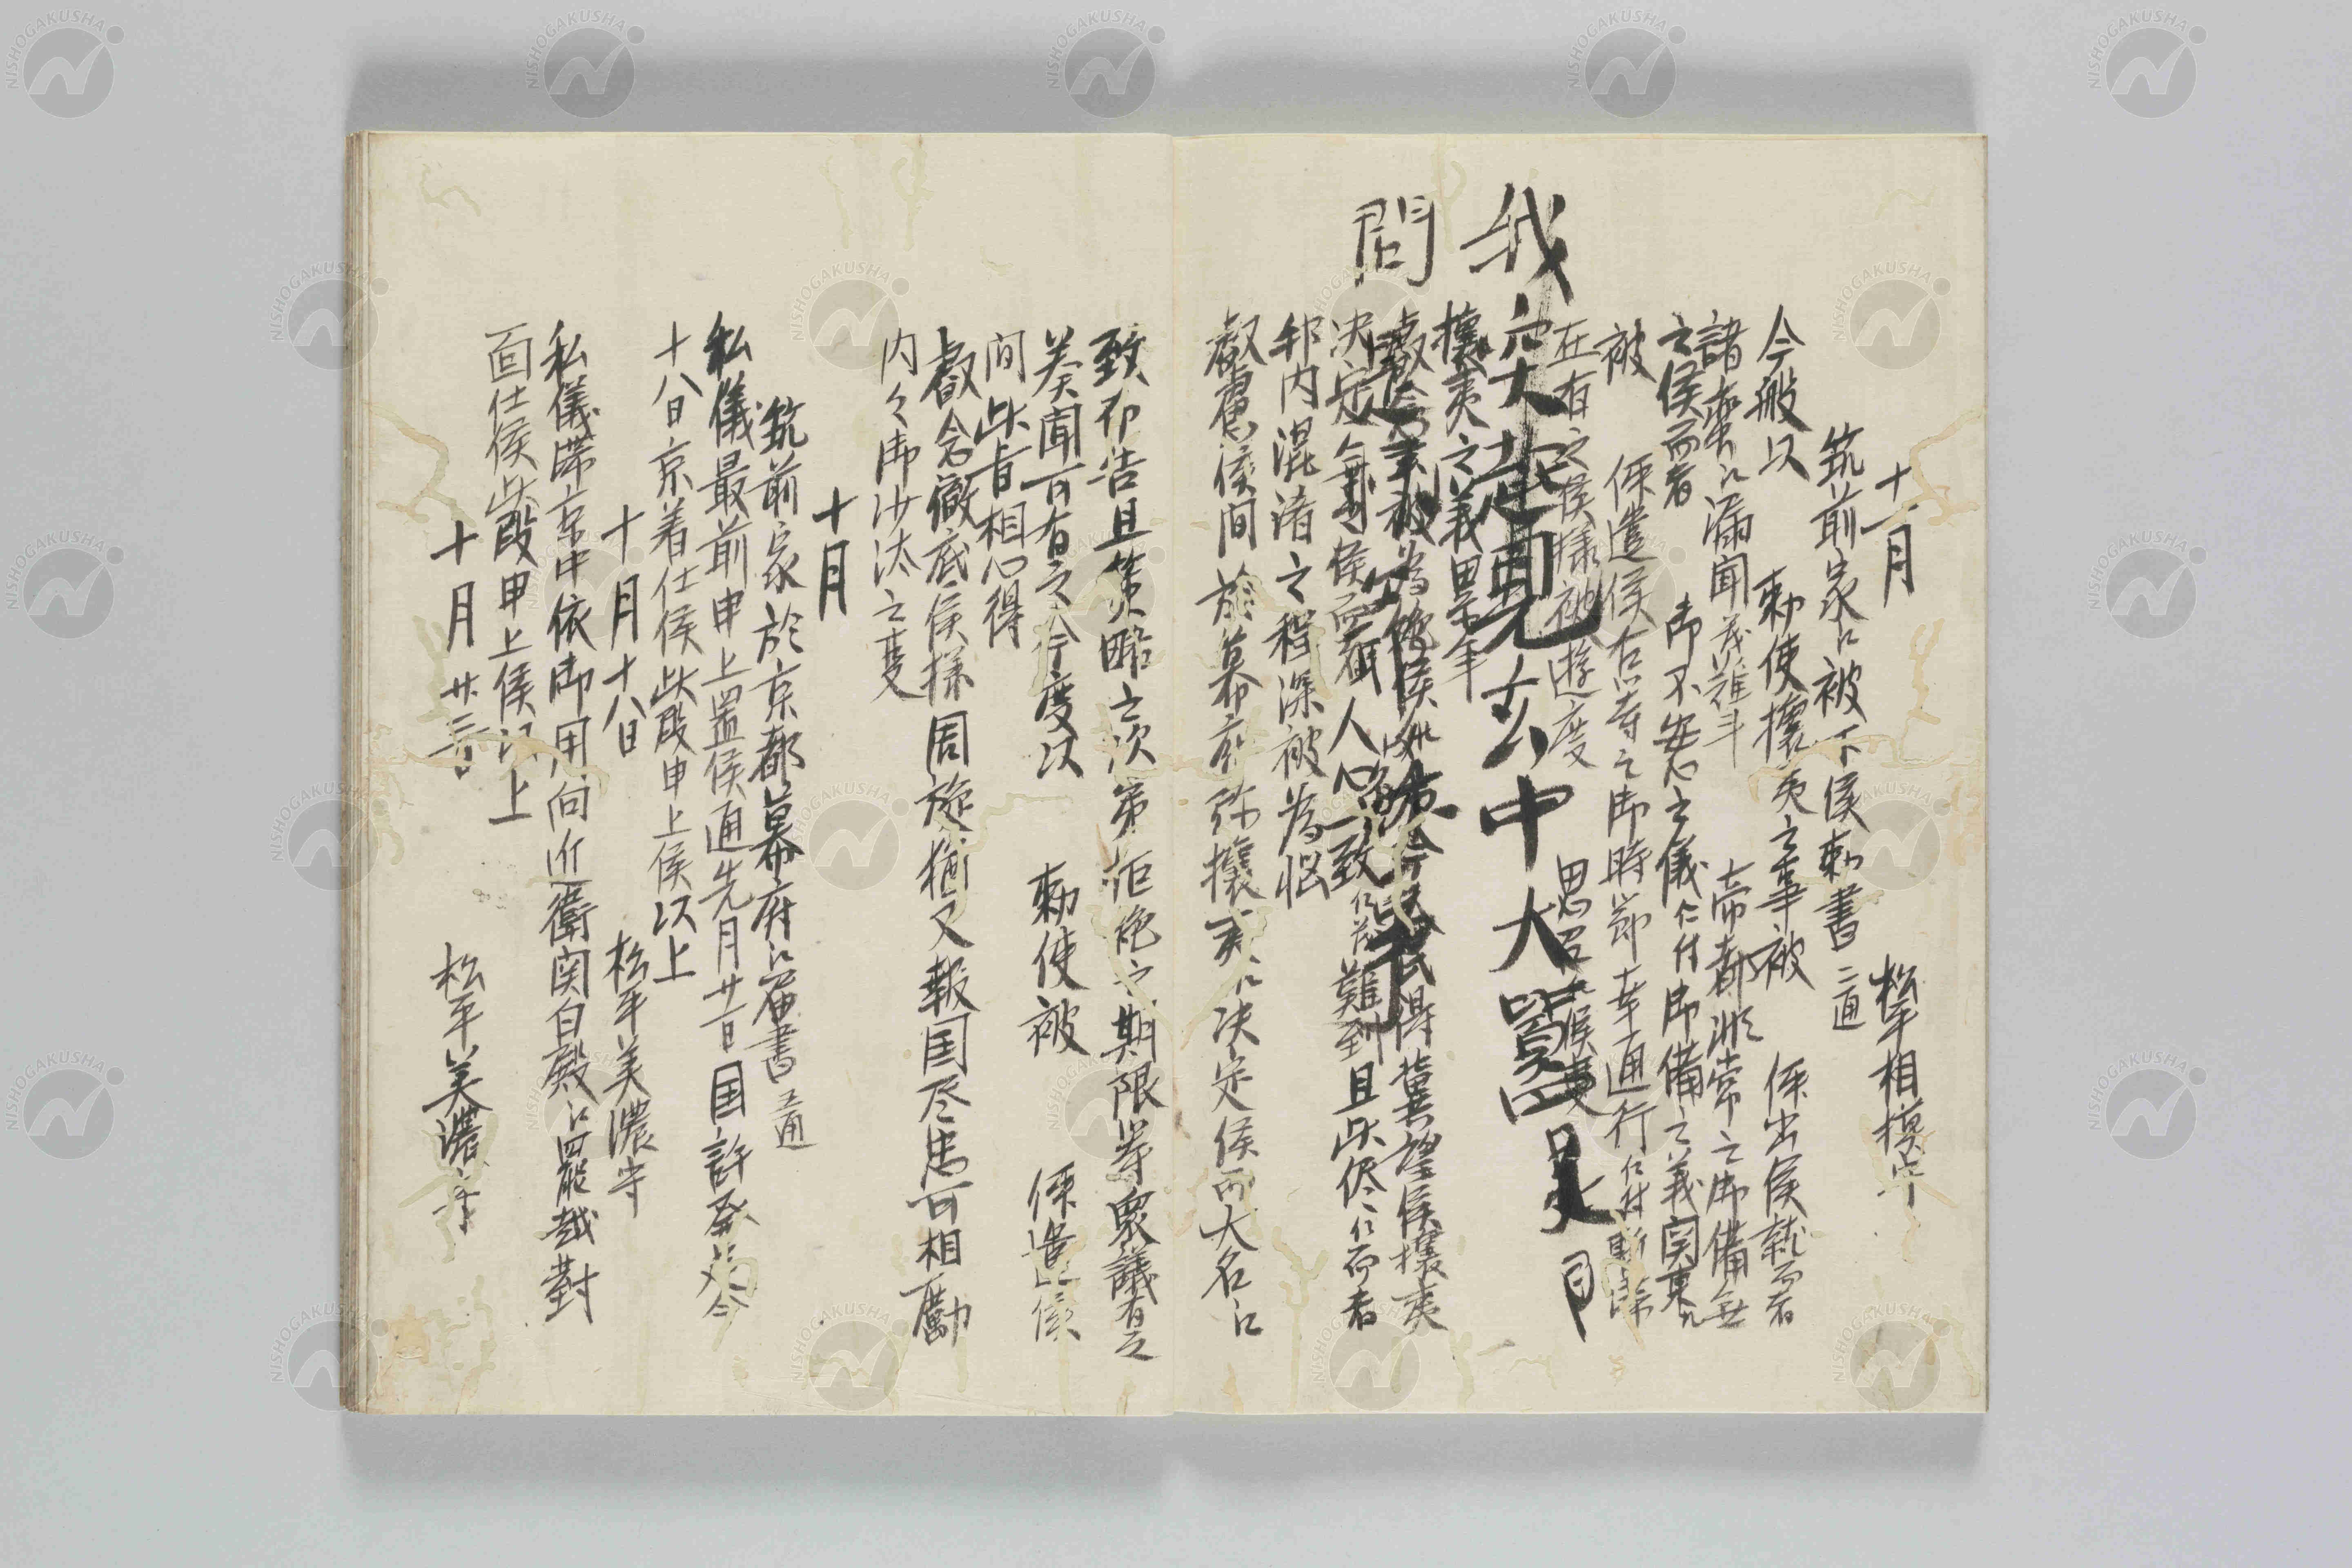 十一月
松平相模守
筑前家江被下候勅書二通
今般以　勅使攘夷之事被　仰出候就而者
諸蛮江漏聞茂難斗　帝都非常之御備無
之候而者　御不安心之儀仁付御備之義関東江
被　仰遣候右等之御時節幸通行仁付斯滞
在有之候様被遊度　思召候事
我　中大　是
問
攘夷之義累年
叡念　被為　候　今　得冀望候攘夷
決定無　候而者人心一致仁茂難到且此侭仁而者
邦内混淆之程深被為悩
叡慮候間於幕府弥攘夷江決定候而大名江
致布告且策略之次第拒絶之期限等衆議有之
奏聞可有之今度以　勅使被　仰遣候
間此旨相心得
叡念徹底候様周旋猶又報国尽忠可相励
内々御沙汰之事
十月
筑前家於京都幕府江届書二通
私儀最前申上置候通先月廿一日国許発途今
十八日京着仕候此段申上候以上
十月十八日　松平美濃守
私儀滞京中依御用向近衛関白殿江罷越対
面仕候此段申上候以上
十月廿三日　松平美濃守
NISHOGAKUSHA